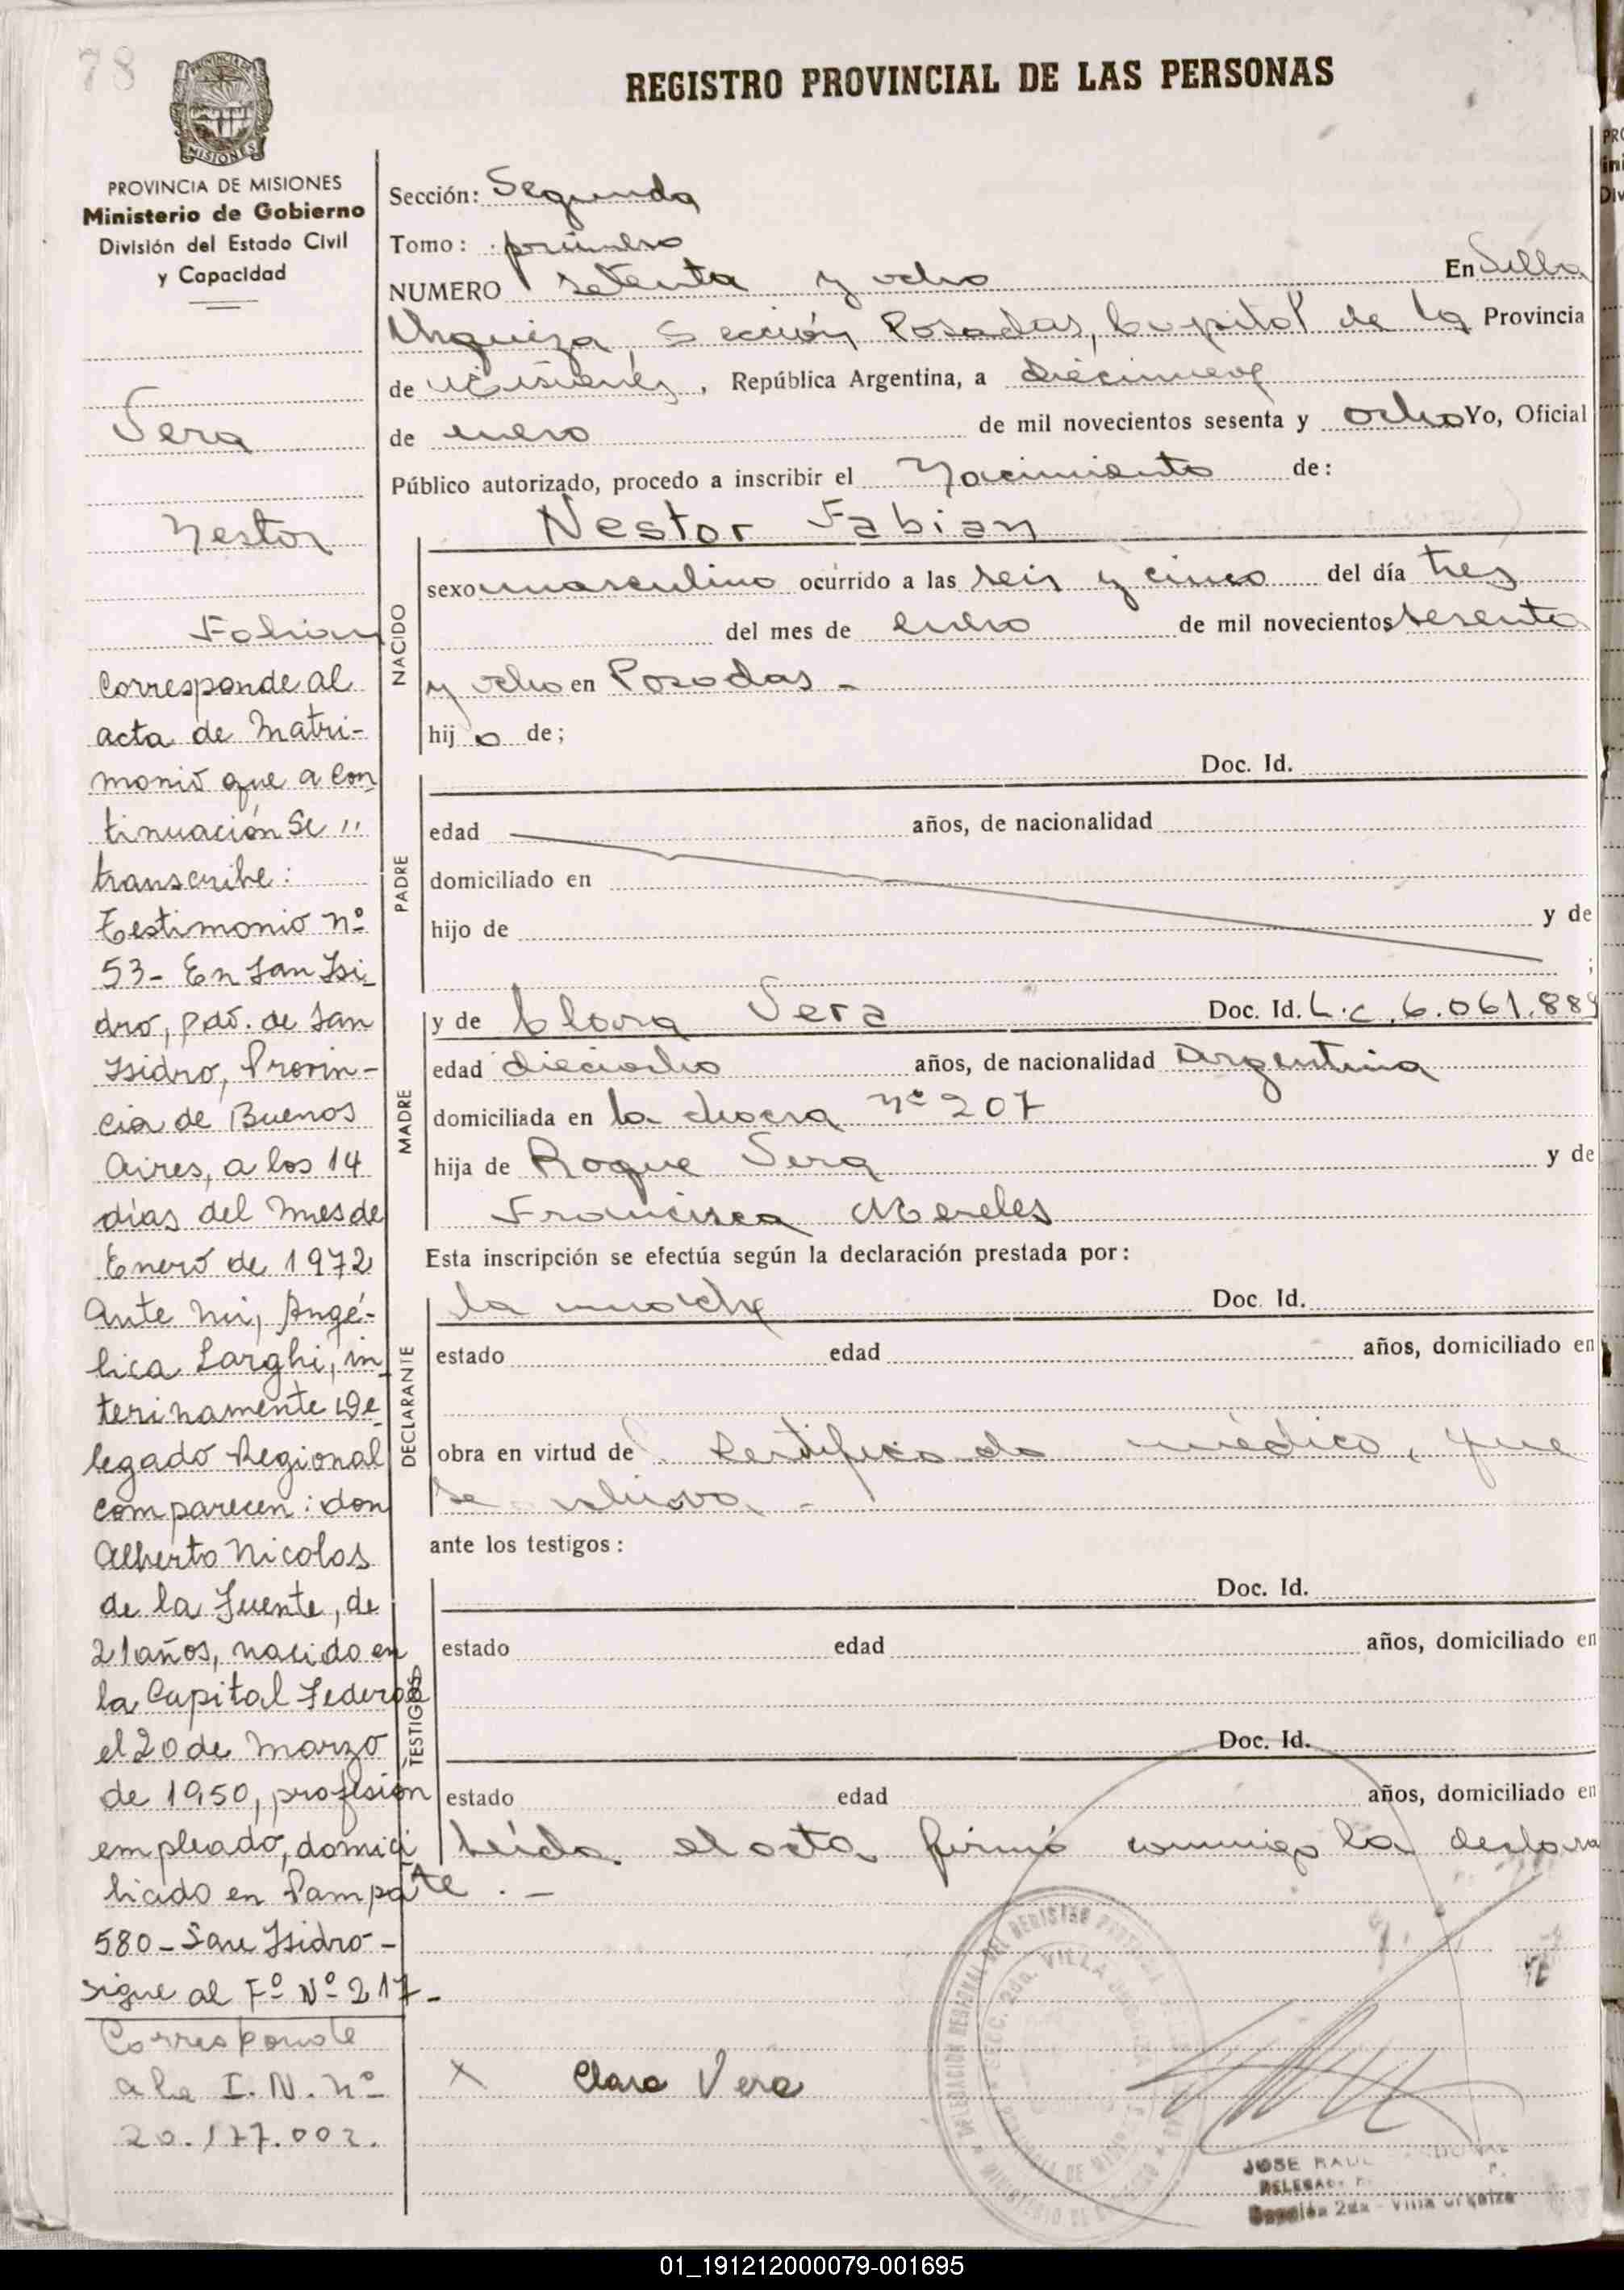 78
REGISTRO PROVINCIAL DE LAS PERSONAS
PROVINCIA DE MISIONES
Ministerio de Gobierno
División del Estado Civil
y Capacidad
Vera
Nestor
Fabian
Corresponde al
acta de Matri-
monio que a con
tinuación se "
transcribe:
Testimonio Nº
53- En San Isi-
dro, pdo. de San
Isidro, Provin-
cia de Buenos
Aires, a los 14
días del mes de
Enero de 1972
Ante mi, Angé-
lica Larghi, in-
terinamente De-
legado Regional
comparecen: don
Alberto Nicolas
de la Fuente, de
21 años, nacido en
la Capital Federal
el 20 de Marzo
de 1950, profesión
empleado, domici
liado en Pampa
580 - San Isidro -
sigue al Fº Nº 217-
Corresponde
a la I.N. Nº
20.177.002.
Sección: Segunda
Tomo: primero
NUMERO setenta y ocho En Villa
Urquiza, Sección Posadas, Capital de la Provincia
de Misiones, República Argentina, a diecinueve
de enero de mil novecientos sesenta y ocho Yo, Oficial
Público autorizado, procedo a inscribir el Nacimiento de:
Nestor Fabian
NACIDO
sexo masculino ocurrido a las seis y cinco del día tres
del mes de enero de mil novecientos sesenta
y ocho en Posadas -
hij o de;
PADRE
Doc. Id.
edad años, de nacionalidad
domiciliado en
hijo de y de
;
MADRE
y de Clara Vera Doc. Id. L.c. 6.061.889
edad dieciocho años, de nacionalidad Argentina
domiciliada en la chacra Nº 207
hija de Roque Vera y de
Francisca Mereles
Esta inscripción se efectúa según la declaración prestada por:
DECLARANTE
la madre Doc. Id.
estado edad años, domiciliado en
obra en virtud de certificado médico, que
se archiva -
ante los testigos:
TESTIGOS
Doc. Id.
estado edad años, domiciliado en
Doc. Id.
estado edad años, domiciliado en
Leída el acta firmó conmigo la declara
te . -
X Clara Vera
JOSE RAUL
Sección 2da - Villa Urquiza
01_191212000079-001695